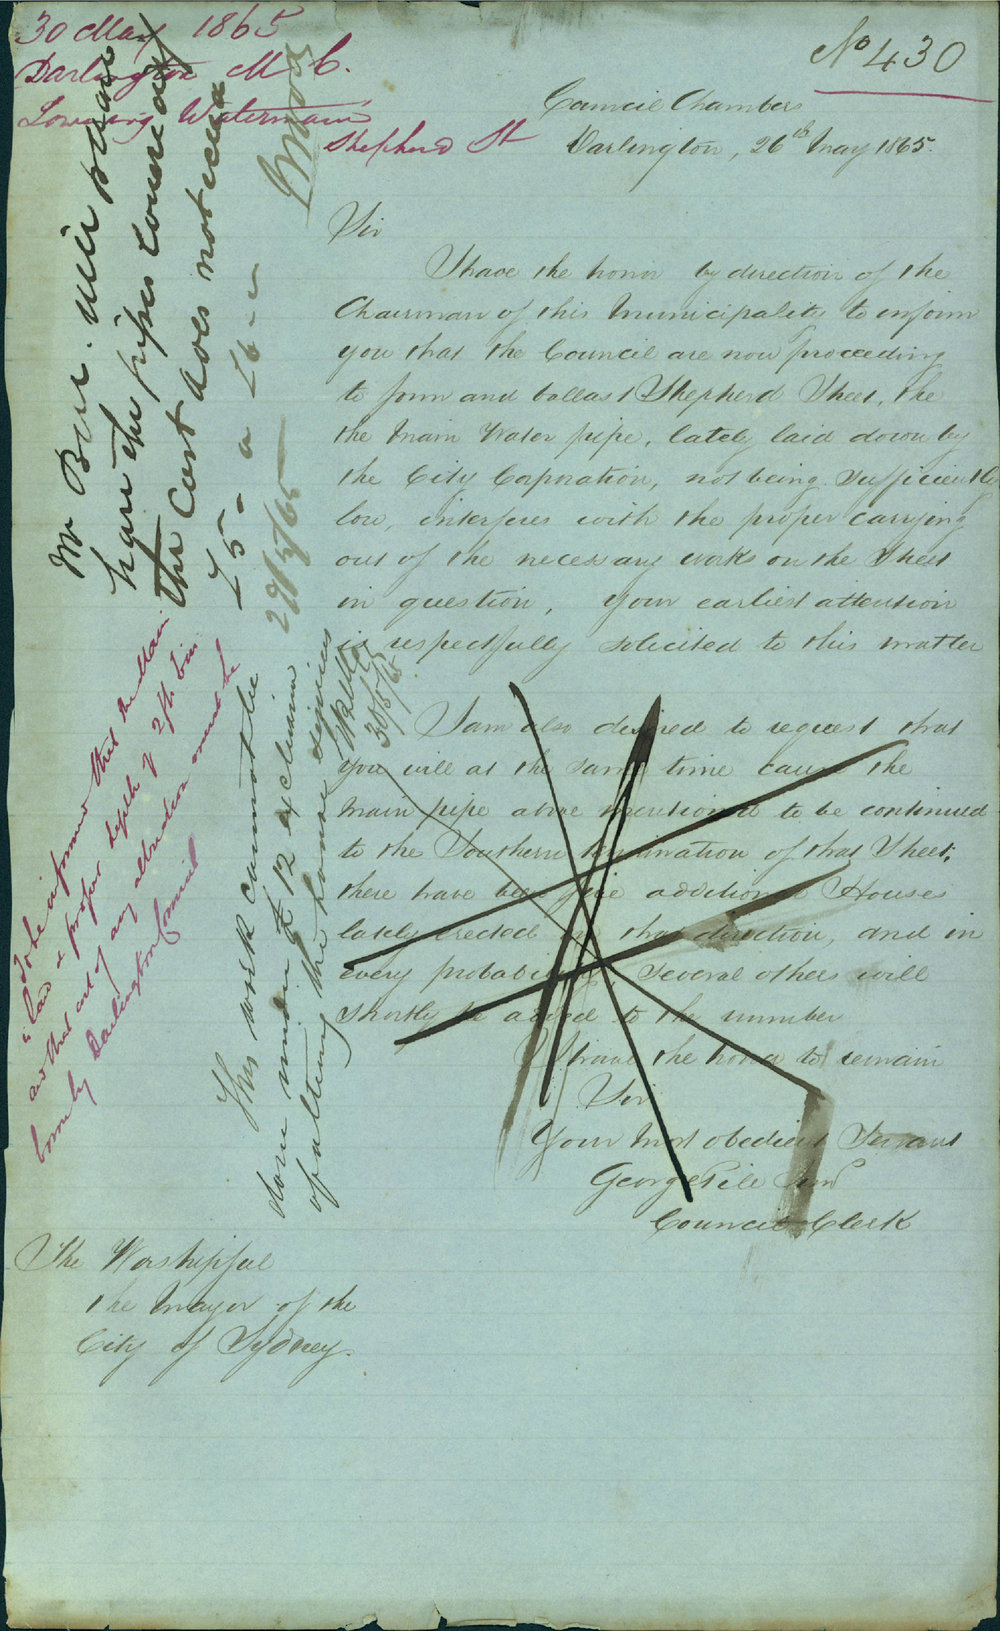 30 May 1865
Darlington M C.
Lowering Watermain
Shepherd St
No 430
Council Chambers
Darlington, 26th May 1865.
Sir
I have the honor by direction of the
Chairman of this Municipality to inform
you that the Council are now proceeding
to form and ballast Shepherd Street, the
the Main Water pipe, lately laid down by
the City Corporation, not being sufficiently
low, interferes with the proper carrying
out of the necessary works on the Street
in question, Your earliest attention
is respectfully solicited to this matter
I am also desired to request that
you will at the same time cause the
Main pipe above mentioned to be continued
to the Southern termination of that Street,
there have been five additional Houses
lately erected in that direction, and in
every probability, several others will
shortly be added to the number
I have the honor to remain
Sir
Your Most obedient Servant
George Pile
Council Clerk
The Worshipful
the Mayor of the
City of Sydney.
Mr Bell will please
have the pipes lowered if
the Cost does not exceed
£5- or £6-
29/5/65
This work cannot be
done under £12 exclusive
of altering the house services
30/5/65
To be informed that the Main
is laid a proper depth of 2ft 6in
and that cost of any alteration must be
borne by Darlington Council